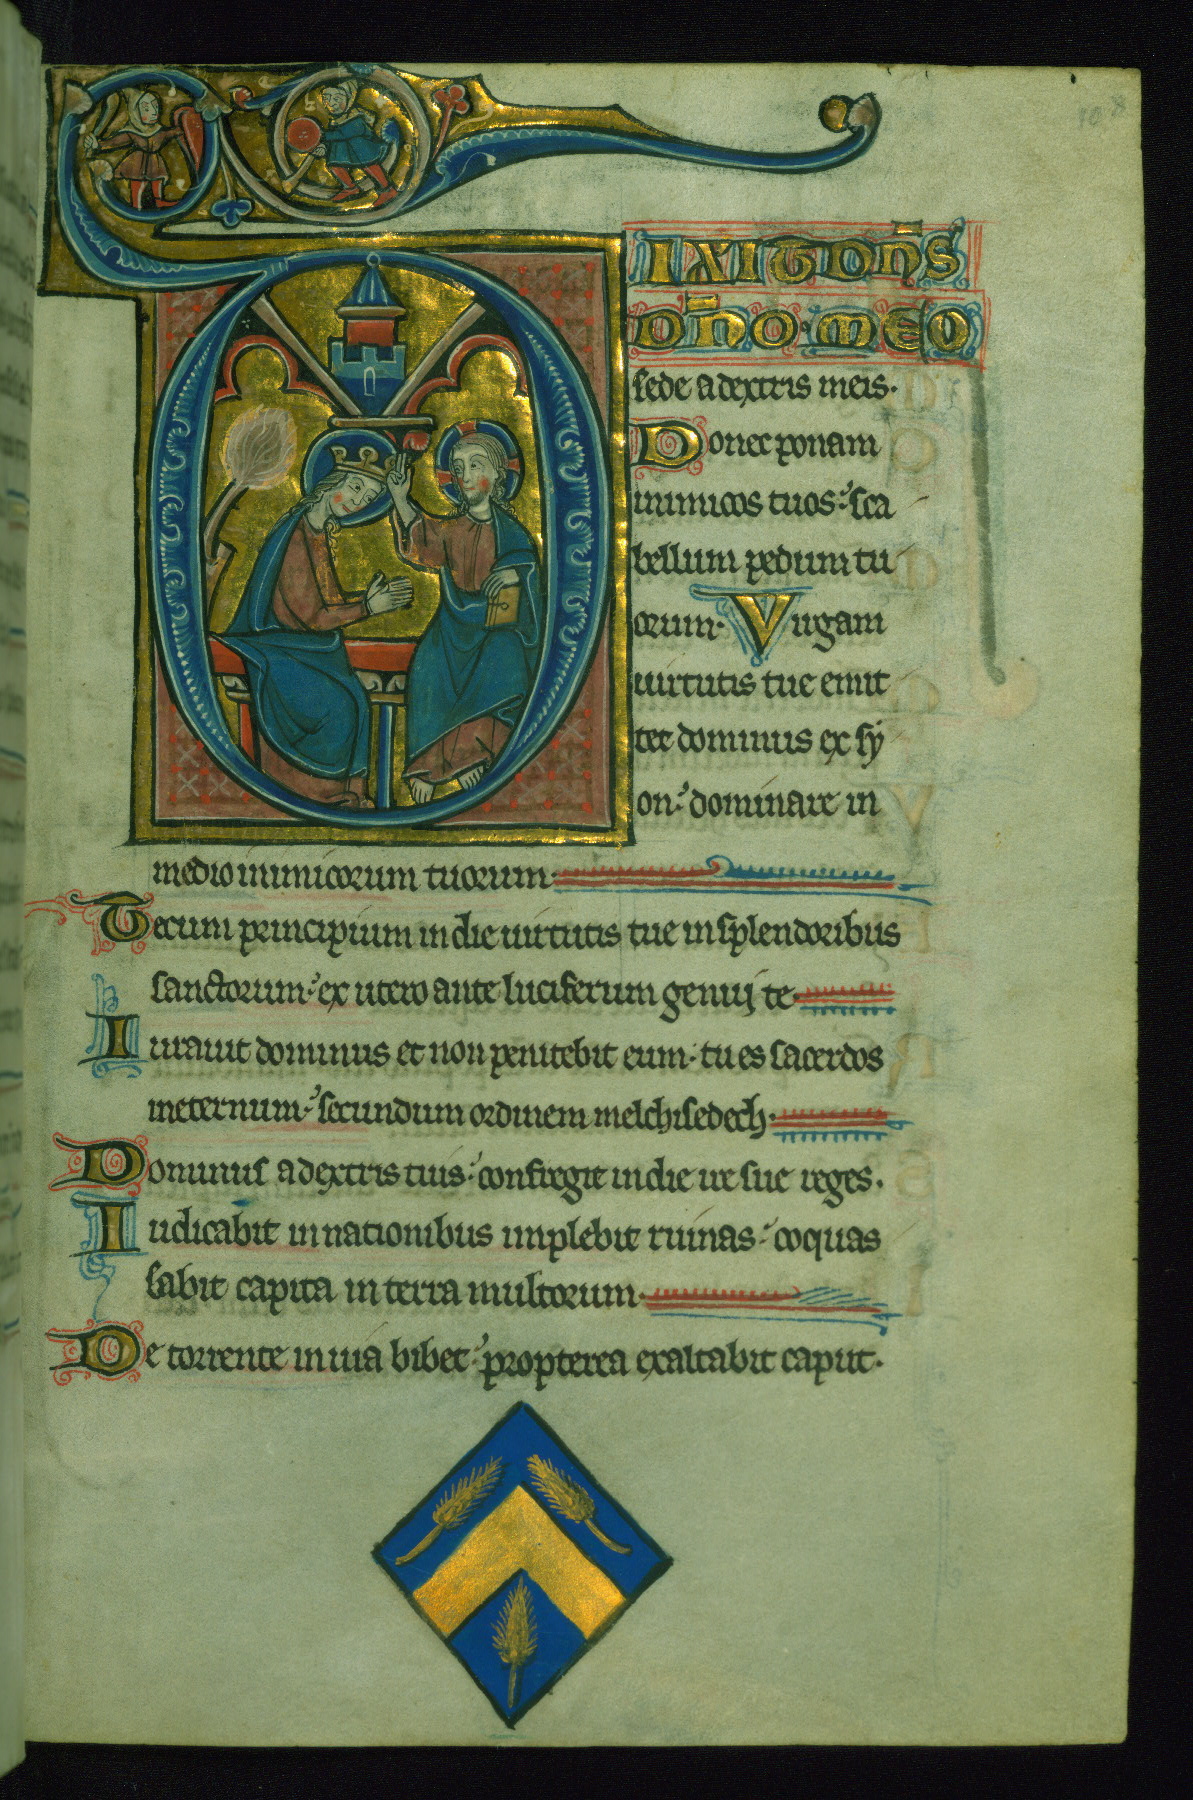 DIXIT DOÑS
DÑO·MEO
sede adextris meis·
Donec ponam
inimicos tuos: sca
bellum pedum tu
orum· Virgam
uirtutis tue emit
tet dominus ex sy
on: dominare in
medio inimicorum tuorum·
Tecum principium in die uirtutis tue in splendoribus
sanctorum: ex utero ante luciferum genuj te·
Iurauit dominus et non penitebit eum· tu es sacerdos
ineternum: secundum ordinem melchisedech·
Dominus adextris tuis: confregit in die ire sue reges·
Iudicabit in nationibus implebit ruinas: coquas
sabit capita in terra multorum·
De torrente in uia bibet: propterea exaltabit caput·